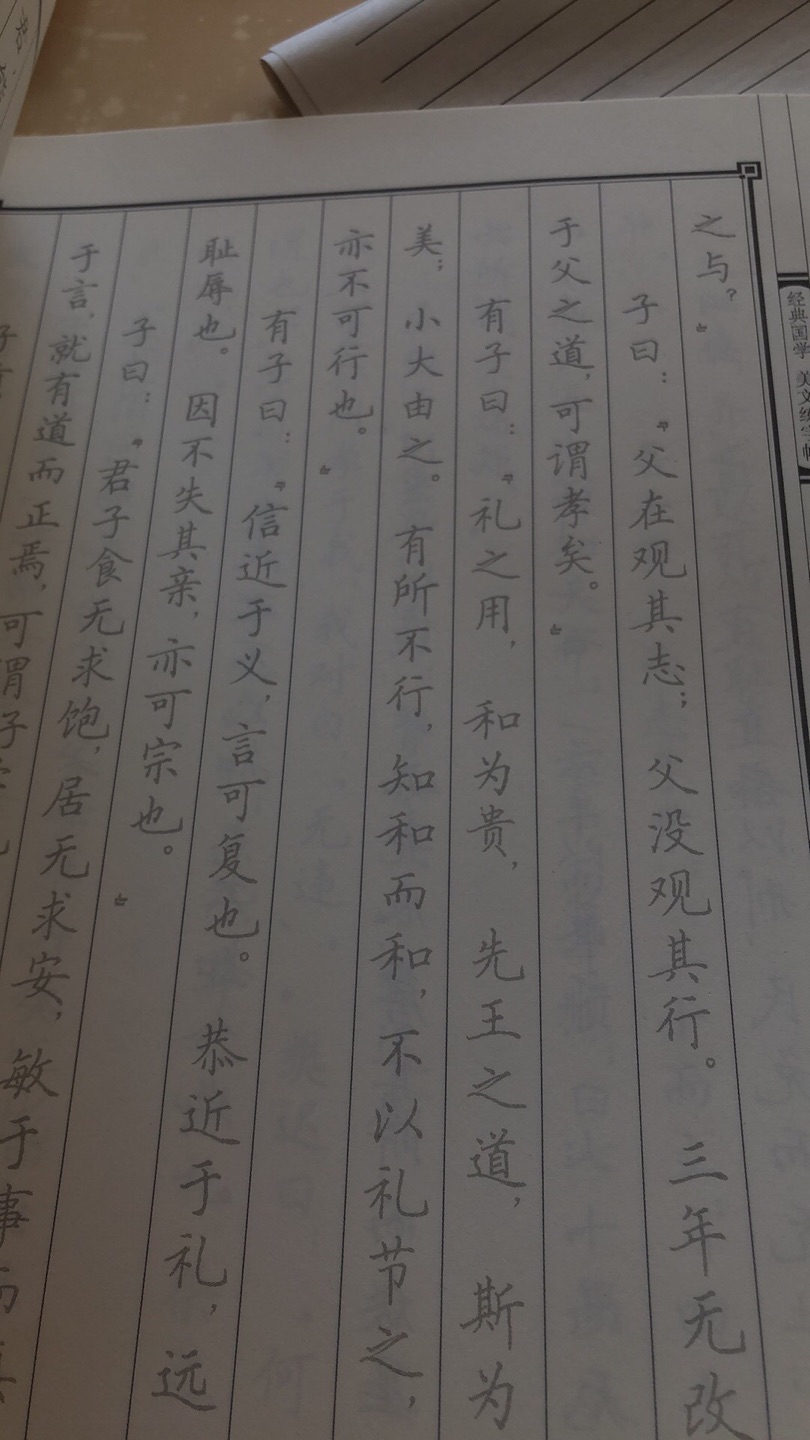 之与？”
子曰：“父在观其志；父没观其行。三年无改
于父之道，可谓孝矣。”
有子曰：“礼之用，和为贵，先王之道，斯为
美；小大由之。有所不行，知和而和，不以礼节之，
亦不可行也。”
有子曰：“信近于义，言可复也。恭近于礼，远
耻辱也。因不失其亲，亦可宗也。”
子曰：“君子食无求饱，居无求安，敏于事而慎
于言，就有道而正焉，可谓
经典国学 美文练字帖